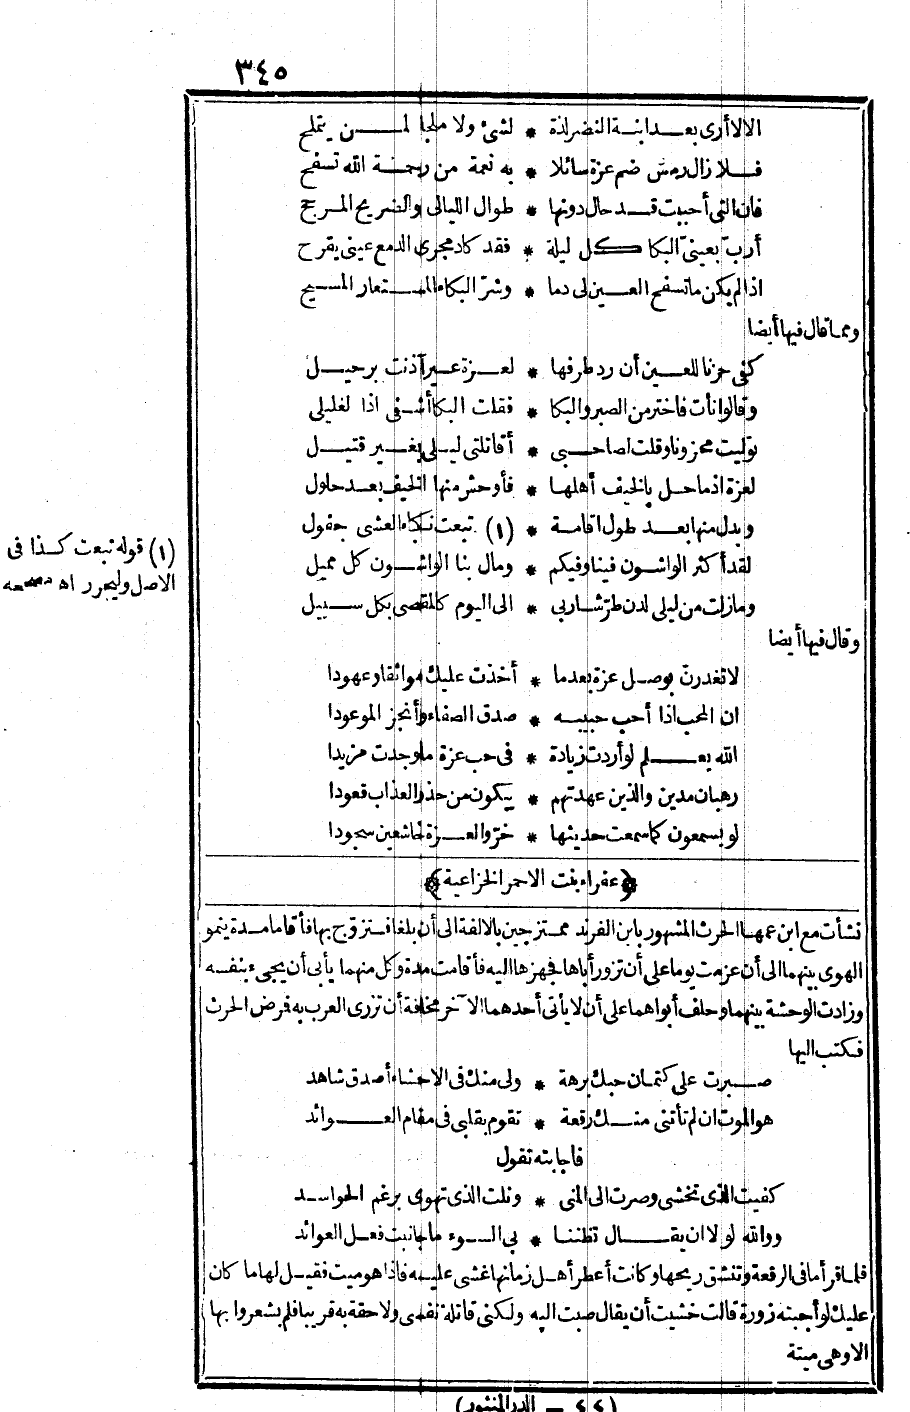 ٣٤٥
الا لا أرى بعد ابنة النضر لذة * لشئ ولا ملحا لمن يتملح
فلا زال رمس ضم عزة سائلا * به نعمة من رحمة الله تسفح
فان التى أحببت قد حال دونها * طوال الليالى والضريح المرجح
أرب بعينىّ البكا كل ليلة * فقد كاد مجرى الدمع عينى يقرح
اذا لم يكن ما تسفح العين لى دما * وشر البكاء المستعار المسيح
ومما قال فيها أيضا
كفى حزنا للعين أن رد طرفها * لعزة عير آذنت برحيل
وقالوا نأت فاختر من الصبر والبكا * فقلت البكا أشفى اذا لغليلى
توليت محزونا وقلت لصاحبى * أقاتلتى ليلى بغير قتيل
لعزة اذ ما حل بالخيف أهلها * فأوحش منها الخيف بعد حلول
وبدل منها بعد طول اقامة * (١) تبعت نكباء العشى جفول
لقد أكثر الواشون فينا وفيكم * ومال بنا الواشون كل مميل
وما زلت من ليلى لدن طرّ شاربى * الى اليوم كالمقصى بكل سبيل
وقال فيها أيضا
لا تغدرن بوصل عزة بعدما * أخذت عليك مواثقا وعهودا
ان المحب اذا أحب حبيبه * صدق الصفاء وأنجز الموعودا
الله يعلم لو أردت زيادة * فى حب عزة ما وجدت مزيدا
رهبان مدين والذين عهدتهم * يبكون من حذر العذاب قعودا
لو يسمعون كما سمعت حديثها * خروا لعزة خاشعين سجودا
﴿عفراء بنت الاحمر الخزاعية﴾
نشأت مع ابن عمها الحرث المشهور بابن الفرند ممتزجين بالالفة الى أن بلغا فتزوج بها فأقاما مدة ينمو
الهوى بينهما الى أن عزمت يوما على أن تزور أباها فجهزها اليه فأقامت مدة وكل منهما يأبى أن يجىء بنفسه
وزادت الوحشة بينهما وحلف أبواهما على أن لا يأتى أحدهما الا آخر مخافة أن تزرى العرب به فرض الحرث
فكتب اليها
صبرت على كتمان حبك برهة * ولى منك فى الاحشاء أصدق شاهد
هو الموت ان لم تأتنى منك رقعة * تقوم بقلبى فى مقام العوائد
فاجابته تقول
كفيت الذى تخشى وصرت الى المنى * ونلت الذى تهوى برغم الحواسد
ووالله لولا ان يقال تظننا * بى السوء ما جانبت فعل العوائد
فلما قرأ ما فى الرقعة وتنشق ريحها وكانت أعطر أهل زمانها غشى عليه فاذا هو ميت فقيل لها ما كان
عليك لو أجبته زورة قالت خشيت أن يقال صبت اليه ولكنى قاتلة نفسى ولاحقة به قريبا فلم يشعروا بها
الا وهى ميتة
(١) قوله تبعت كذا فى
الاصل وليحرر اه مصححه
(٤٤ - الدر المنثور)